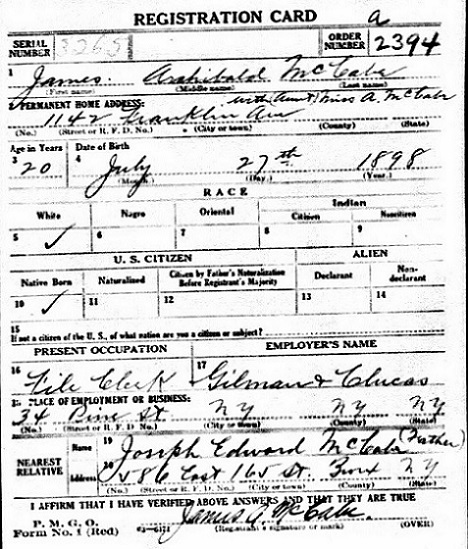 REGISTRATION CARD a
SERIAL NUMBER 3265 ORDER NUMBER 2394
1 James Archibald McCabe
(First name) (Middle name) (Last name)
2 PERMANENT HOME ADDRESS: with Aunt Miss A. McCabe
1142 Franklin Ave
(No.) (Street or R. F. D. No.) (City or town) (County) (State)
Age in Years Date of Birth
3 20 4 July 27th 1898
(Month.) (Day.) (Year.)
RACE
White Negro Oriental Indian
Citizen Noncitizen
5 ✓ 6 7 8 9
U. S. CITIZEN ALIEN
Native Born Naturalized Citizen by Father's Naturalization Before Registrant's Majority Declarant Non-declarant
10 ✓ 11 12 13 14
15
If not a citizen of the U. S., of what nation are you a citizen or subject?
PRESENT OCCUPATION EMPLOYER'S NAME
16 File Clerk 17 Gilman & Clucas
18 PLACE OF EMPLOYMENT OR BUSINESS:
34 Pine St. NY NY NY
(No.) (Street or R. F. D. No.) (City or town) (County) (State)
NEAREST RELATIVE Name 19 Joseph Edward McCabe (Father)
Address 20 586 East 165 St. Bronx NY
(No.) (Street or R. F. D. No.) (City or town) (County) (State)
I AFFIRM THAT I HAVE VERIFIED ABOVE ANSWERS AND THAT THEY ARE TRUE
P. M. G. O.
Form No. 1 (Red) James A. McCabe
(Registrant's signature or mark) (OVER)